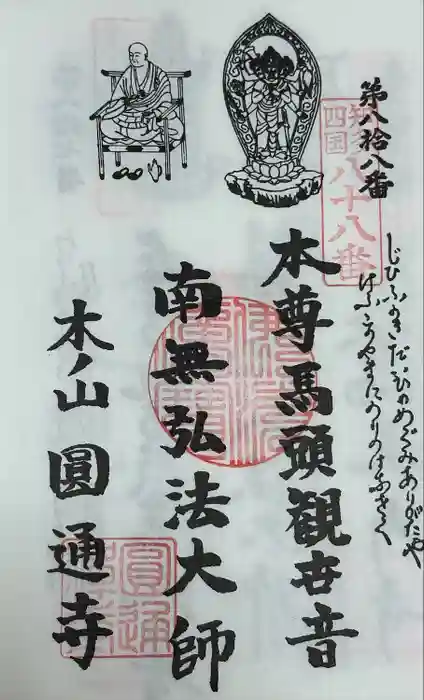 第八拾八番
知多
四国
八十八番
じひふかきだいひのめぐみありがたや
のりのはなさく
本尊馬頭觀世音
南無弘法大師
木ノ山 圓通寺
圓通